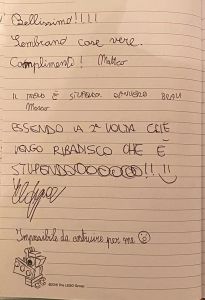 Bellissimo!!!!
Sembrano case vere.
Complimenti! Matteo
IL TRENO È STUPENDO DAVVERO BRAVI
Marco
ESSENDO LA 2ª VOLTA CHE
VENGO RIBADISCO CHE È
STUPENDOOOOOOO!!!!
Impossibile da costruire per me ☹
©2016 The LEGO Group